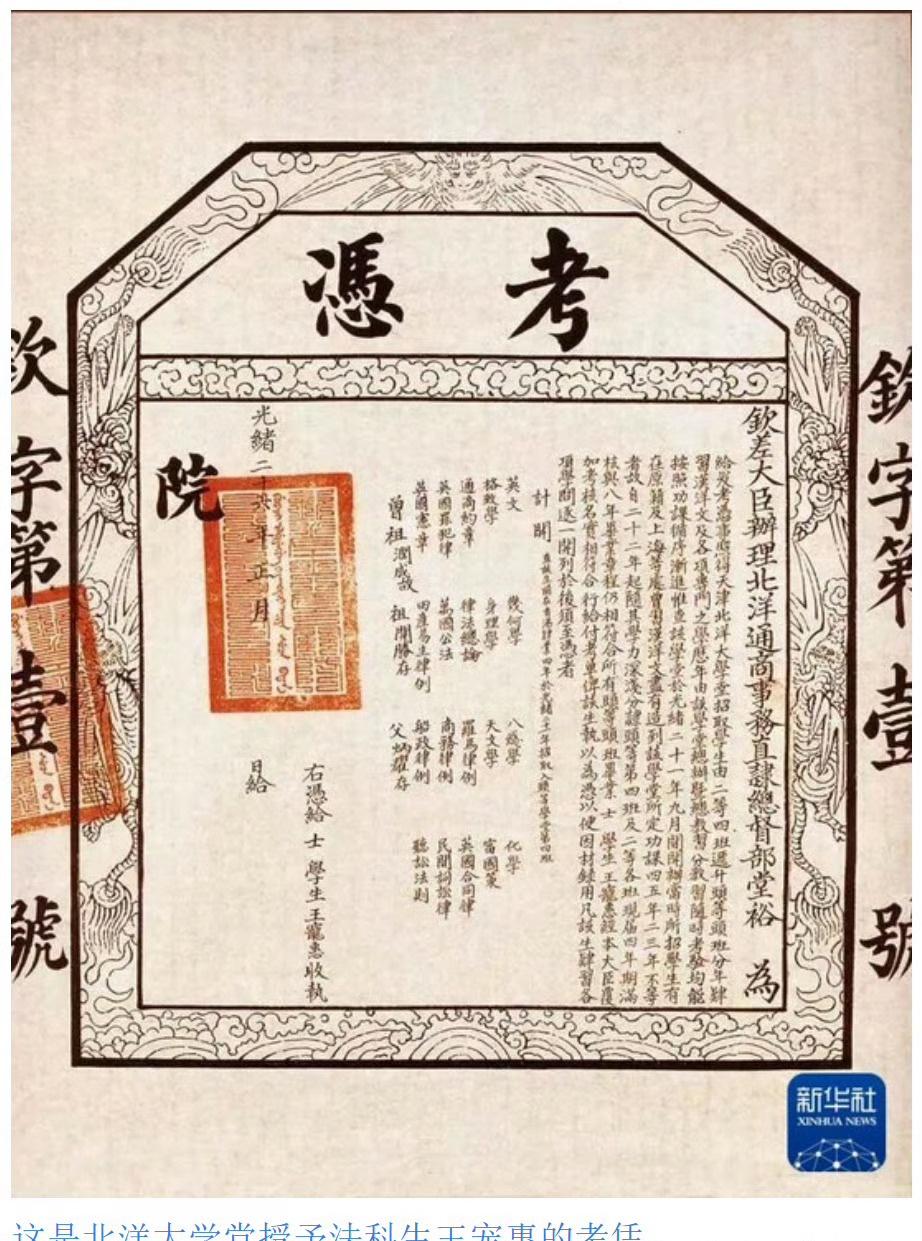 考憑
欽字第壹號
欽差大臣辦理北洋通商事務直隸總督部堂裕 為
給發考憑事照得天津北洋大學堂招取學生由二等四班遞升頭等頭班分年肄
習漢洋文及各項專門之學歷年由該學堂總辦暨總教習分教習隨時考驗均能
按照功課循序漸進惟查該學堂於光緒二十一年九月開辦當時所招學生有
在原籍及上海等處曾習漢洋文盡有造到該學堂所定功課四五年二三年不等
者故自二十二年起隨其學力深淺分隸頭等第四班及二等各班現屆四年期滿
核與八年畢業章程仍相符合所有頭等頭班畢業 士 學生王寵惠經本大臣覆
加考核名實相符合行給付考單俾該生執以為憑以便因材錄用凡該生肄習各
項學問逐一開列於後須至憑者
計開 肄業四年於光緒二十一年招取入頭等學堂第四班
英文 幾何學 八線學 化學
格致學 身理學 天文學 富國策
通商約章 律法總論 羅馬律例 英國合同律
英國罪犯律 萬國公法 商務律例 民間詞訟律
英國憲章 田產易主律例 船政律例 聽訟法則
曾祖潤成故 祖開勝存 父炳耀存
右憑給 士 學生王寵惠收執
光緒二十六年正月 日給
院
欽字第壹號
新华社
XINHUA NEWS
这是北洋大学堂授予法科生王宠惠的考凭